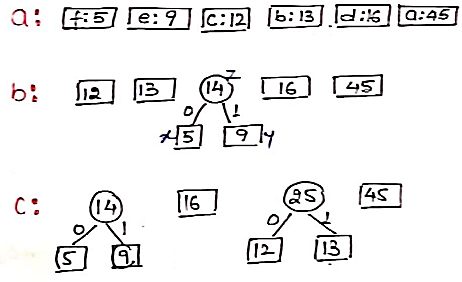 a: f:5 e:9 c:12 b:13 d:16 a:45
b: 12 13 14 z 16 45
0 1
x 5 9 y
c: 14 16 25 45
0 1 0 1
5 9 12 13